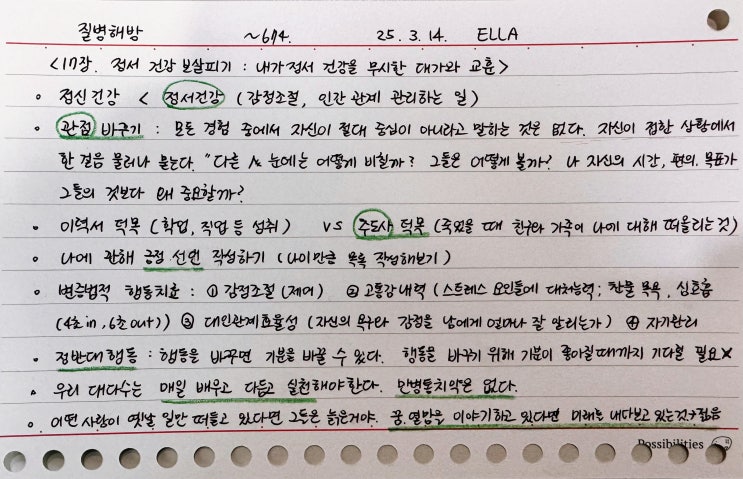 질병해방 ~674. 25. 3. 14. ELLA
<17장. 정서 건강 보살피기 : 내가 정서 건강을 무시한 대가와 교훈>
• 정신건강 < 정서건강 (감정조절, 인간관계 관리하는 일)
• 관점 바꾸기 : 모든 경험 중에서 자신이 절대 중심이 아니라고 말하는 것은 없다. 자신이 접한 상황에서
한 걸음 물러나 묻는다. "다른 人 눈에는 어떻게 비칠까? 그들은 어떻게 볼까? 나 자신의 시간, 편의, 목표가
그들의 것보다 왜 중요할까?
• 이력서 덕목 (학업, 직업 등 성취) VS 추도사 덕목 (죽었을 때 친구와 가족이 나에 대해 떠올리는 것)
• 나에 관해 긍정 선언 작성하기 (나이만큼 목록 작성해보기)
• 변증법적 행동치료 : ① 감정조절 (제어) ② 고통감내력 (스트레스 요인들에 대처능력; 찬물 목욕, 심호흡
(4초 in, 6초 out)) ③ 대인관계효율성 (자신의 욕구와 감정을 남에게 얼마나 잘 알리는가) ④ 자기관리
• 정반대행동 : 행동을 바꾸면 기분을 바꿀 수 있다. 행동을 바꾸기 위해 기분이 좋아질때까지 기다릴 필요X
• 우리 대다수는 매일 배우고 다듬고 실천해야한다. 만병통치약은 없다.
• 어떤 사람이 옛날 일만 떠들고 있다면 그들은 늙은거야. 꿈, 열망을 이야기하고 있다면 미래를 내다보고 있는것→젊음
Possibilities